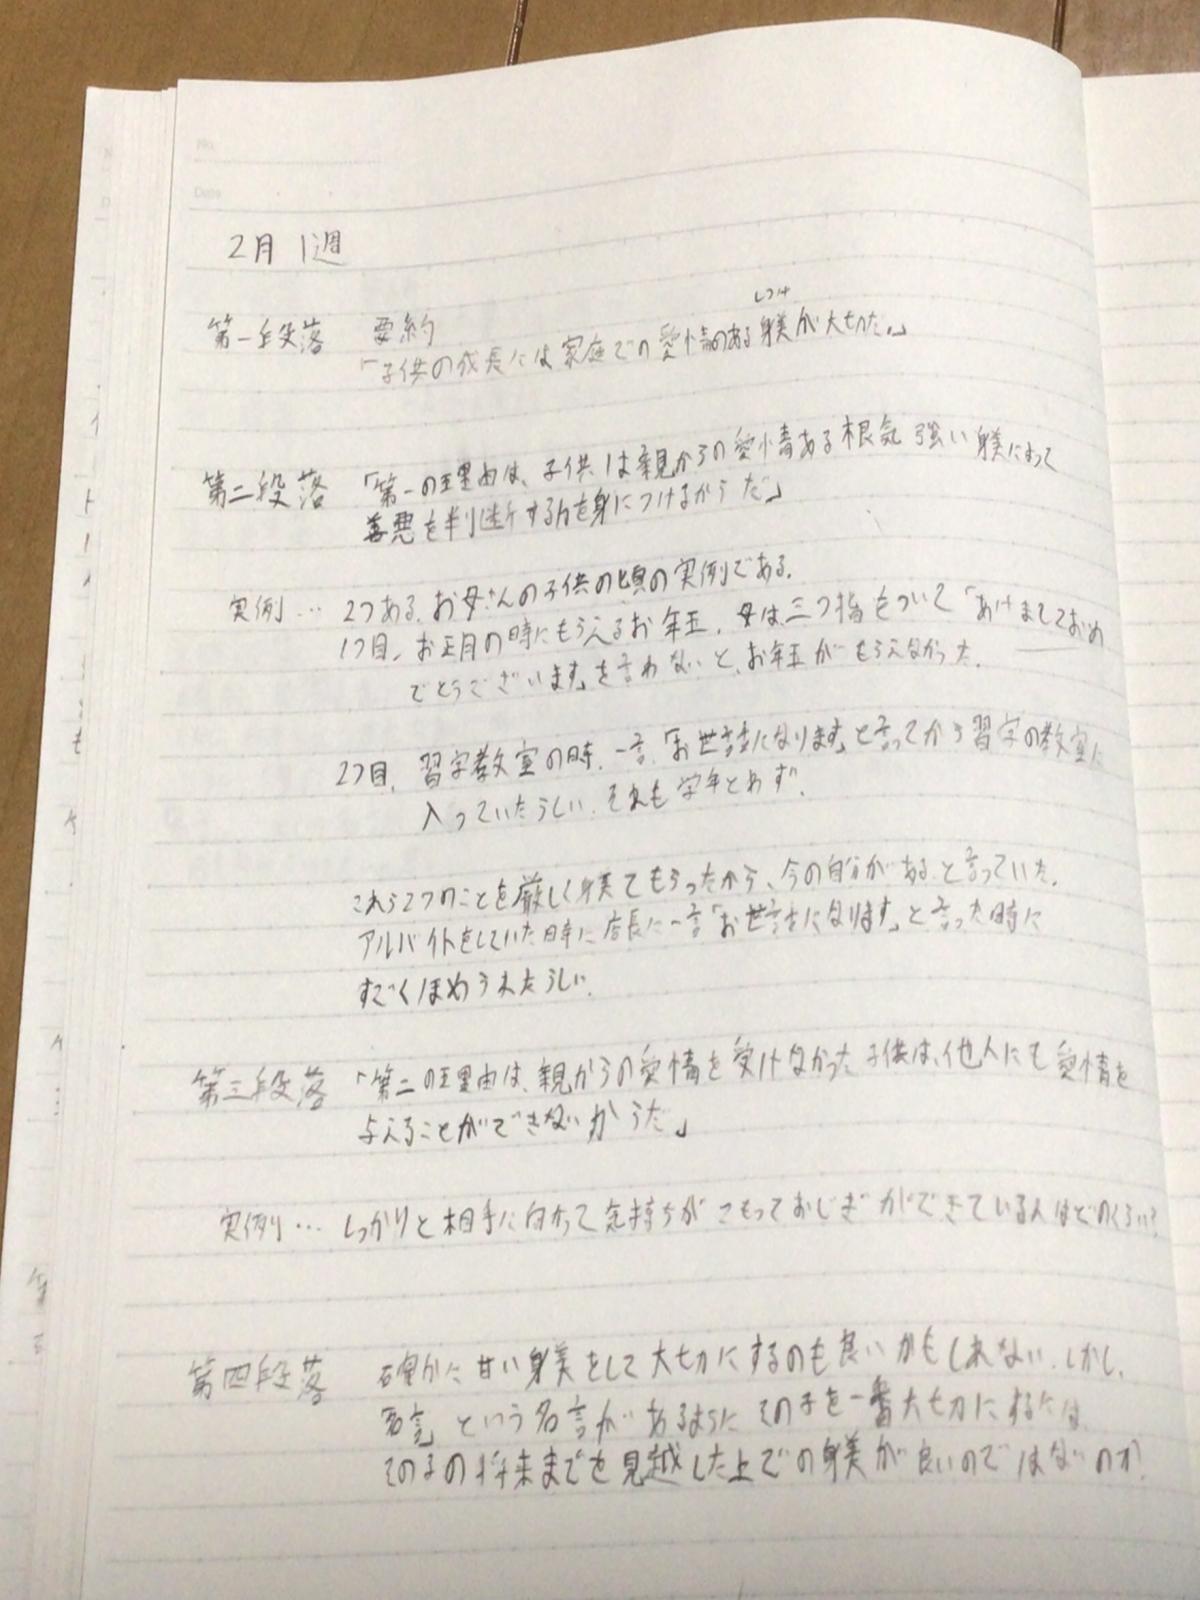 No.
Date
2月 1週
第一段落 要約
しつけ
「子供の成長には家庭での愛情のある躾が大切だ。」
第二段落 「第一の理由は、子供は親からの愛情ある根気強い躾によって
善悪を判断する力を身につけるからだ」
実例… 2つある。お母さんの子供の頃の実例である。
1つ目、お正月の時にもらえるお年玉、母は三つ指をついて「あけましておめ
でとうございます」を言わないと、お年玉がもらえなかった。
2つ目、習字教室の時、一言「お世話になります」と言ってから習字の教室に
入っていたらしい。それも学年とわず。
これら2つのことを厳しく躾てもらったから、今の自分がある。と言っていた。
アルバイトをしていた時に店長に一言「お世話になります」と言った時に
すごくほめられたらしい。
第三段落 「第二の理由は、親からの愛情を受けなかった子供は、他人にも愛情を
与えることができないからだ」
実例… しっかりと相手に向かって気持ちがこもっておじぎができている人はどのくらい?
第四段落 確かに甘い躾をして大切にするのも良いかもしれない。しかし、
「名言」という名言があるようにその子を一番大切にするには
その子の将来までを見越した上での躾が良いのではないのか。